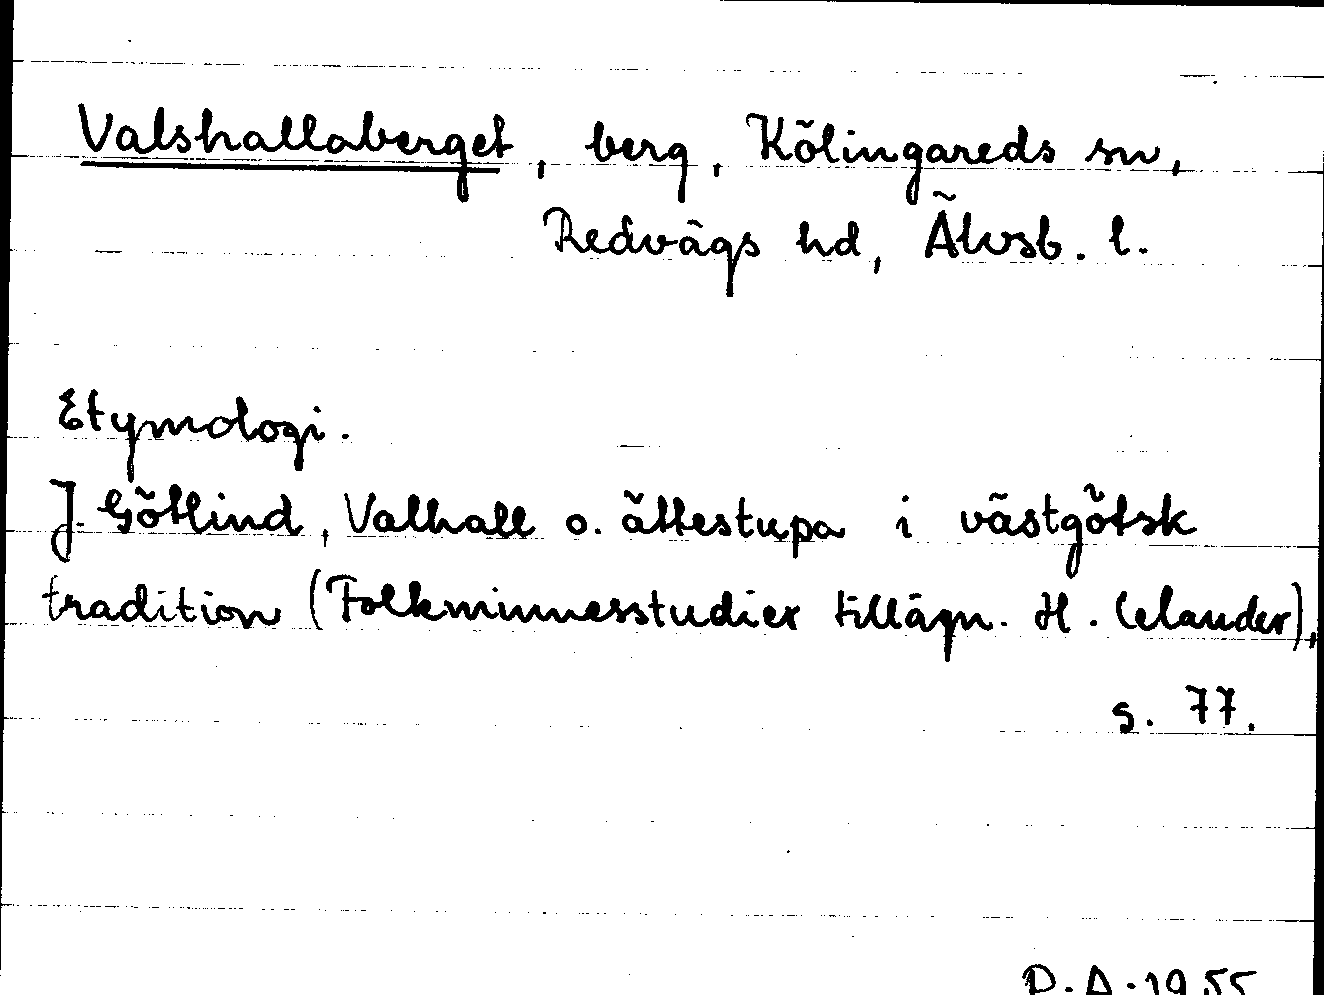 Valshallaberget, berg, Kölingareds sn,
Redvägs hd, Älvsb. l.
Etymologi.
J. Götlind, Valhall o. ättestupa i västgötsk
tradition (Folkminnesstudier tillägn. H. Celander),
s. 77.
D.A. 1955